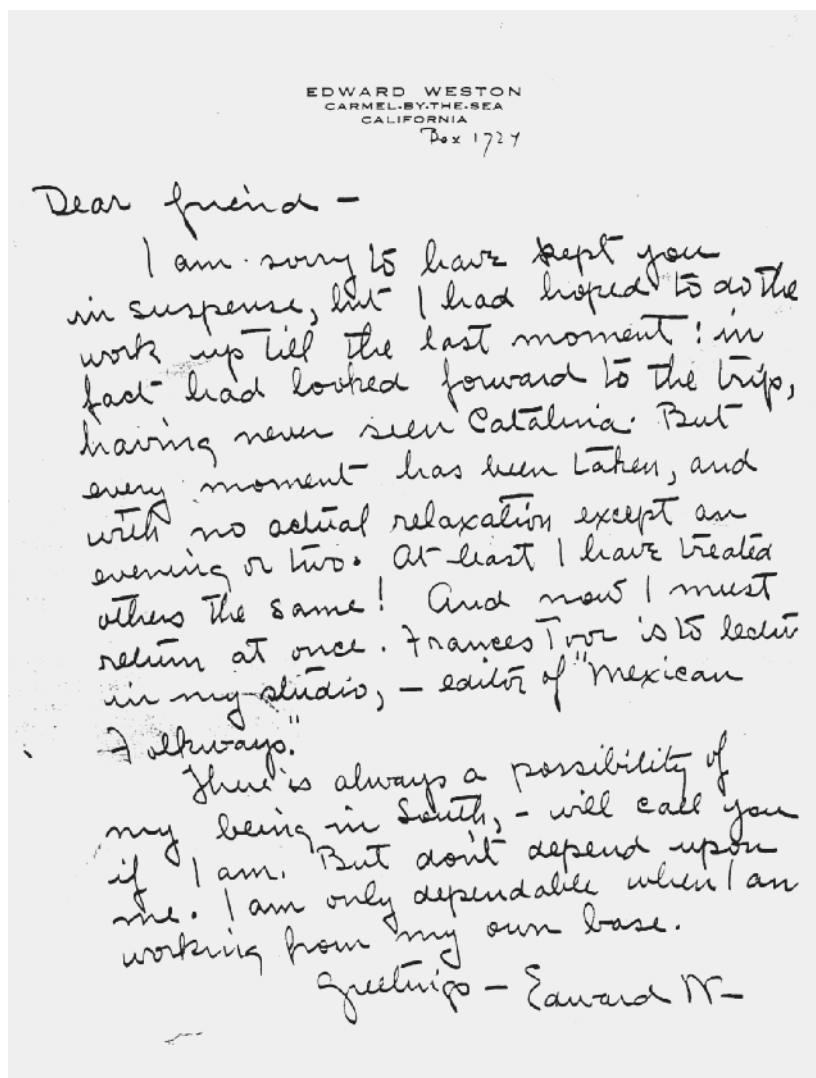 EDWARD WESTON
CARMEL-BY-THE-SEA
CALIFORNIA
Box 1724
Dear friend -
I am sorry to have kept you
in suspense, but I had hoped to do the
work up till the last moment: in
fact had looked forward to the trip,
having never seen Catalina. But
every moment has been taken, and
with no actual relaxation except an
evening or two. At least I have treated
others the same! And now I must
return at once. Frances Toor is to lecture
in my studio, - editor of "Mexican
Folkways."
There is always a possibility of
my being in South, - will call you
if I am. But don't depend upon
me. I am only dependable when I am
working from my own base.
Greetings - Edward W-